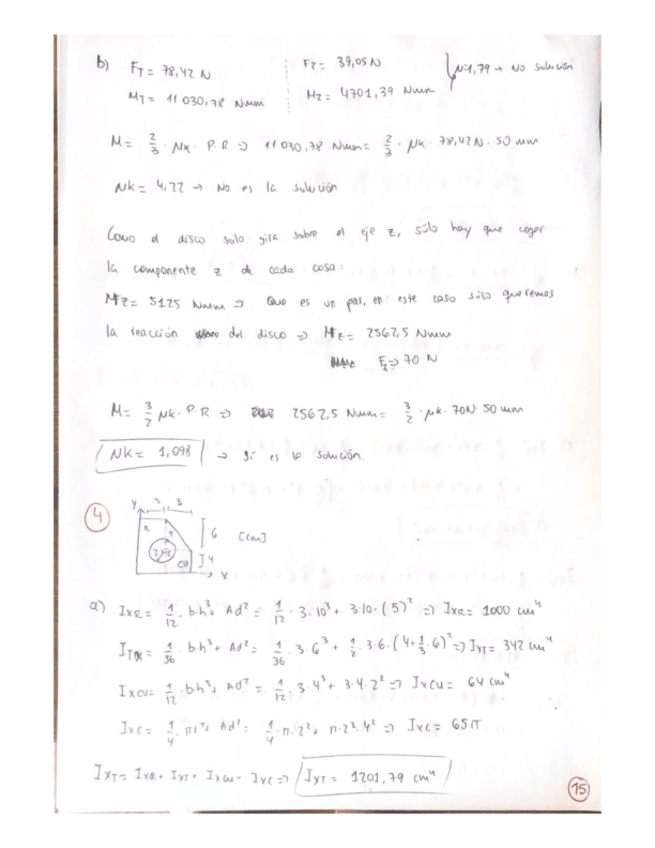 b) F_T = 78,42 N   F_Z = 39,05 N   μ=1,79 → No solución
M_T = 11 030,78 Nmm   M_Z = 4701,39 Nmm
M = 2/3 · μk · P·R ⇒ 11 030,78 Nmm = 2/3 · μk · 78,42 N · 50 mm
μk = 4,22 → No es la solución
Como el disco solo gira sobre el eje z, sólo hay que coger
la componente z de cada cosa:
M_FZ = 5125 Nmm ⇒ Que es un par, en este caso sólo queremos
la reacción del disco ⇒ M_FZ = 2562,5 Nmm
F_Z ⇒ 70 N
M = 3/2 μk · P·R ⇒ 2562,5 Nmm = 3/2 · μk · 70N · 50 mm
μk = 1,098 → Sí es la solución.
4
Y 3 3
R T 6 [cm]
C CU 4
X
a) I_XR = 1/12 · b·h³ + Ad² = 1/12 · 3·10³ + 3·10·(5)² ⇒ I_XR = 1000 cm⁴
I_TX = 1/36 · b·h³ + Ad² = 1/36 · 3·6³ + 1/2 · 3·6·(4+1/3·6)² ⇒ I_XT = 342 cm⁴
I_XCU = 1/12 · b·h³ + Ad² = 1/12 · 3·4³ + 3·4·2² ⇒ I_XCU = 64 cm⁴
I_XC = 1/4 · πr⁴ + Ad² = 1/4 · π·2⁴ + π·2²·4² ⇒ I_XC = 65π
I_XT = I_XR + I_XT + I_XCU - I_XC ⇒ I_XT = 1201,79 cm⁴
15